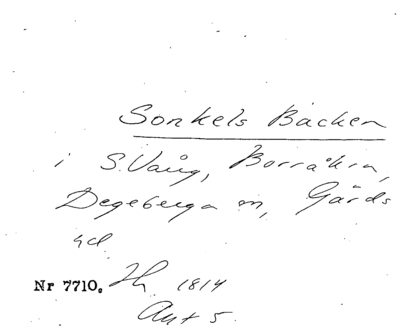 Sonkels Backen
i S. Vång, Borråkra,
Degeberga sn, Gärds
hd
Nr 7710. Th 1814
Akt 5.